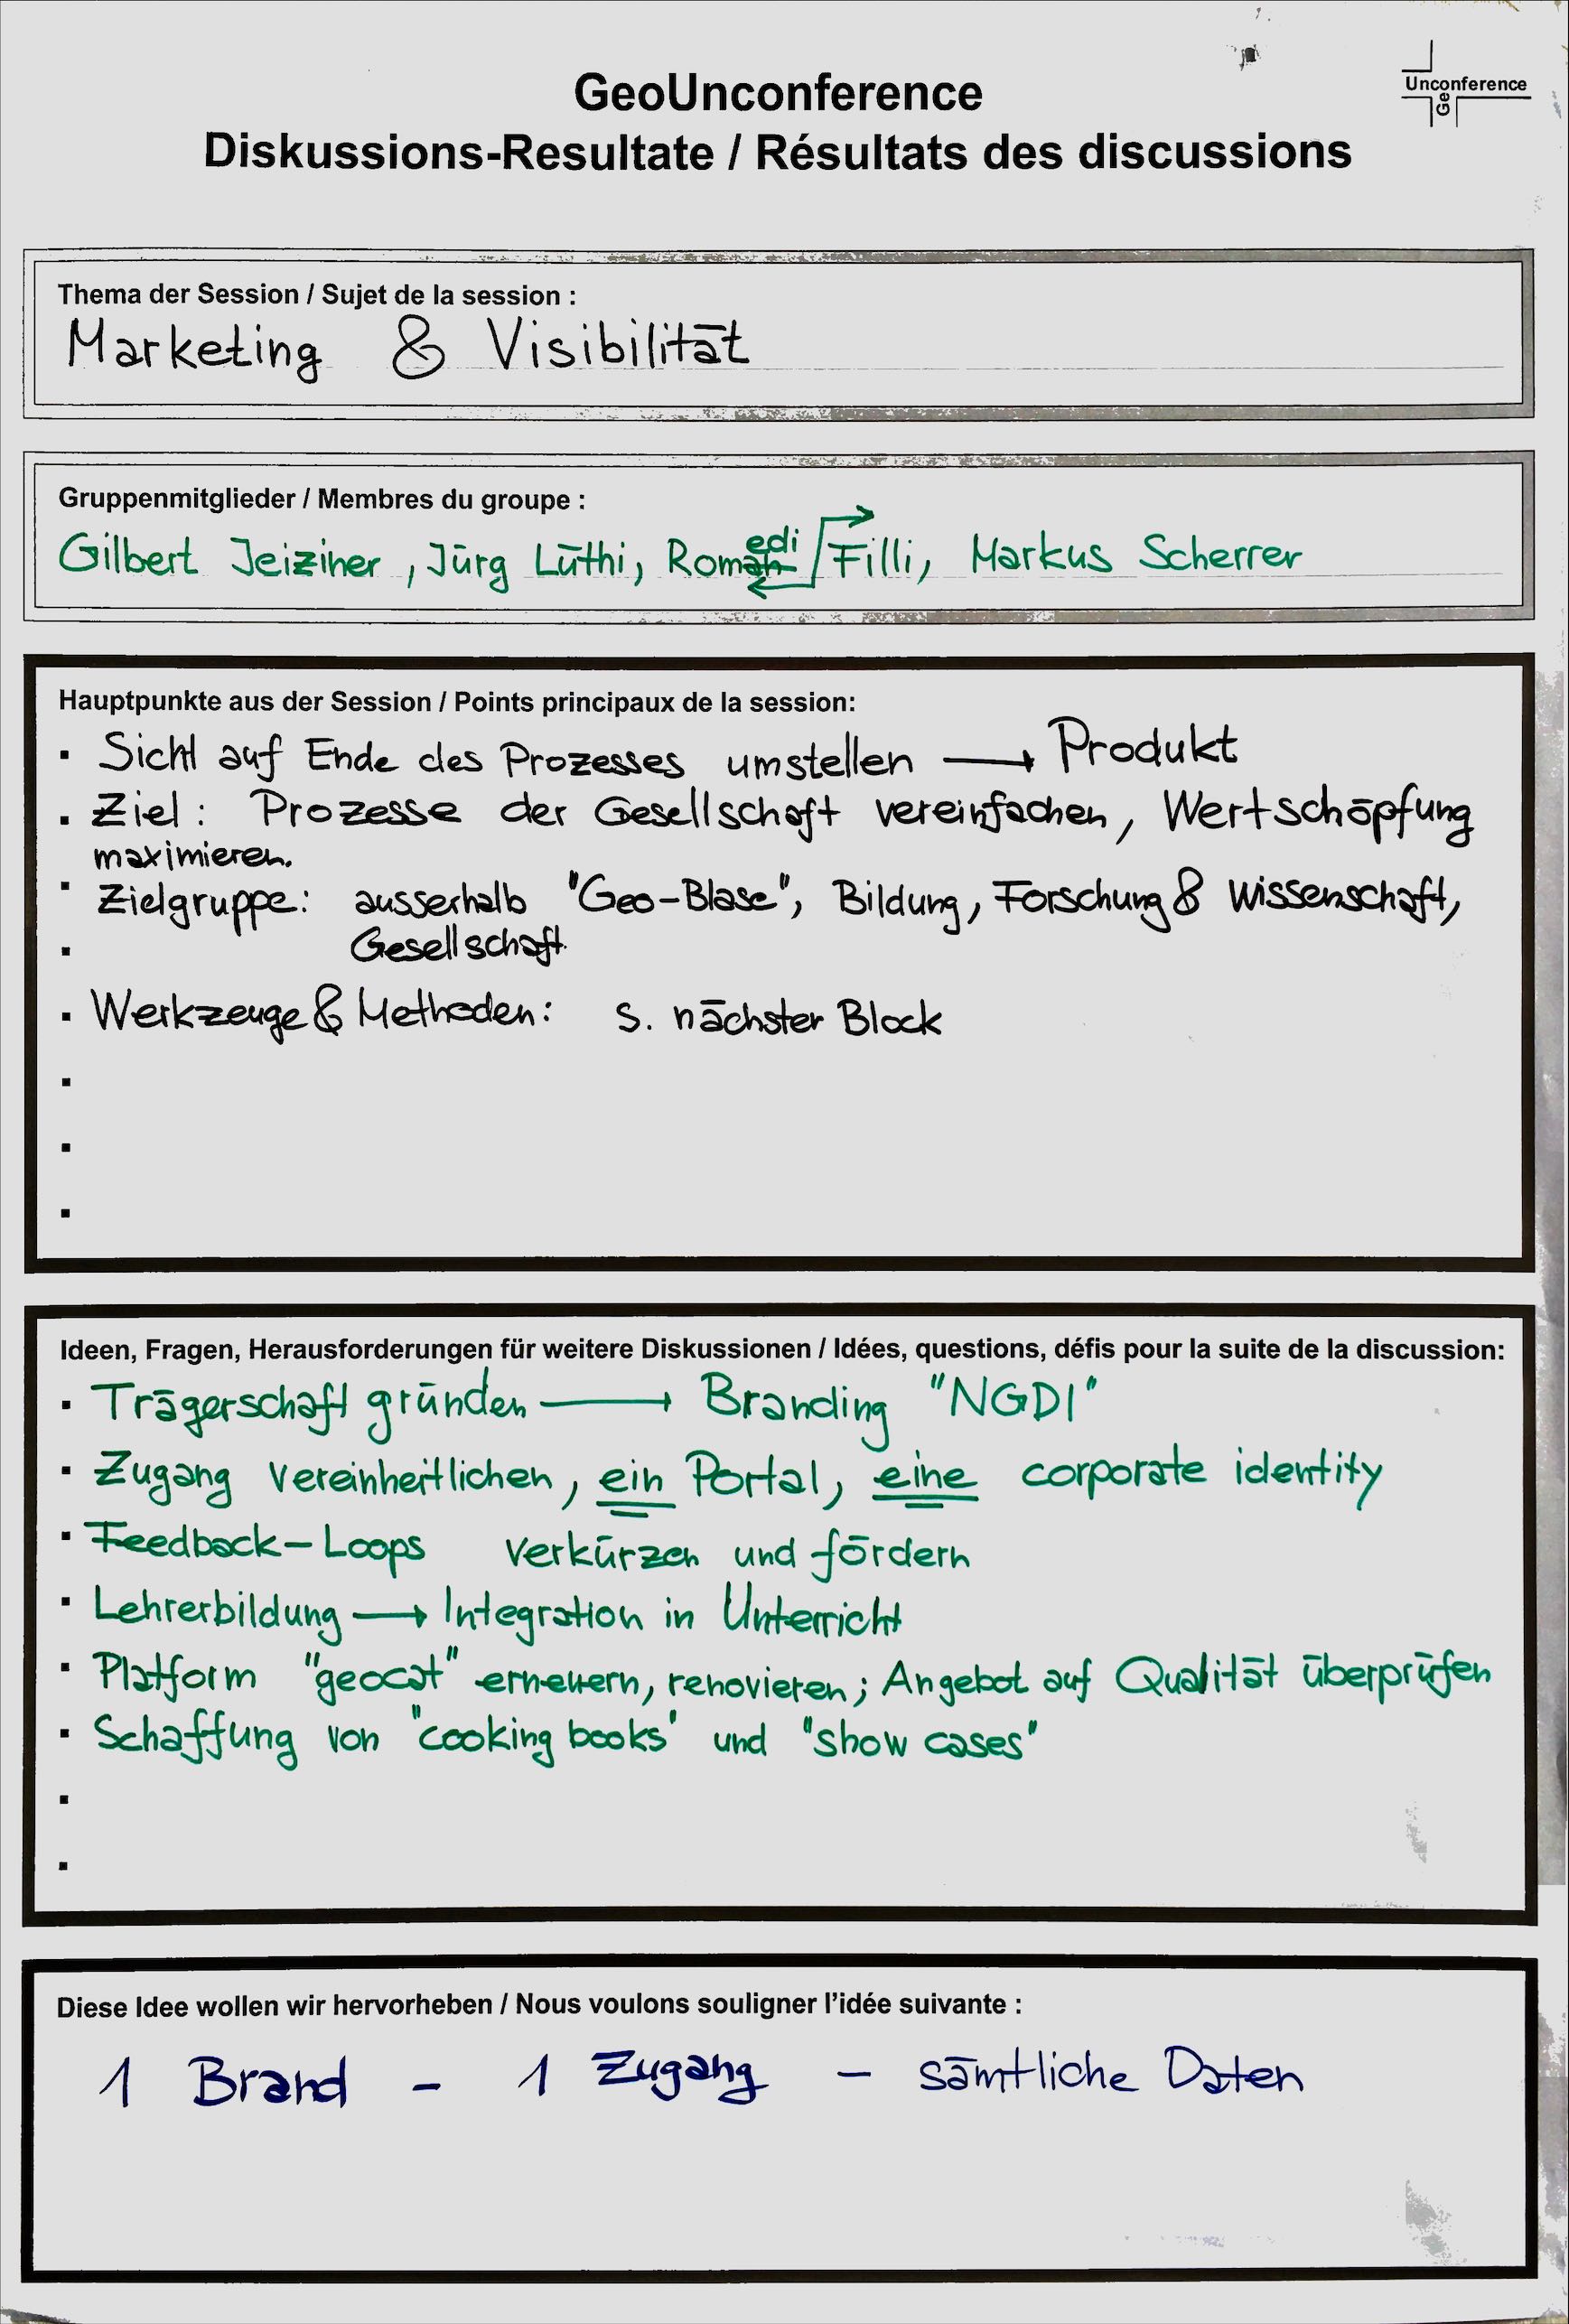 GeoUnconference
Unconference
Geo
Diskussions-Resultate / Résultats des discussions
Thema der Session / Sujet de la session :
Marketing & Visibilität
Gruppenmitglieder / Membres du groupe :
Gilbert Jeiziner, Jürg Lüthi, Roman edi Filli, Markus Scherrer
Hauptpunkte aus der Session / Points principaux de la session:
▪ Sicht auf Ende des Prozesses umstellen → Produkt
▪ Ziel: Prozesse der Gesellschaft vereinfachen, Wertschöpfung
maximieren.
▪ Zielgruppe: ausserhalb "Geo-Blase", Bildung, Forschung & Wissenschaft,
▪ Gesellschaft.
▪ Werkzeuge & Methoden: s. nächster Block
▪
▪
▪
Ideen, Fragen, Herausforderungen für weitere Diskussionen / Idées, questions, défis pour la suite de la discussion:
▪ Trägerschaft gründen → Branding "NGDI"
▪ Zugang vereinheitlichen, ein Portal, eine corporate identity
▪ Feedback-Loops verkürzen und fördern
▪ Lehrerbildung → Integration in Unterricht
▪ Platform "geocat" erneuern, renovieren; Angebot auf Qualität überprüfen
▪ Schaffung von "cooking books" und "show cases"
▪
▪
Diese Idee wollen wir hervorheben / Nous voulons souligner l'idée suivante :
1 Brand - 1 Zugang - sämtliche Daten